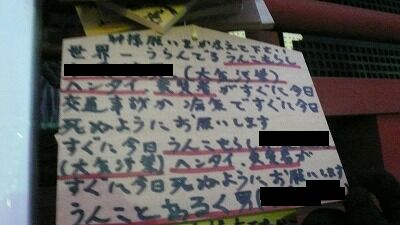 神様願いをかなえて下さい
世界一 うらんでる うんこもらし
(大気汚染)
ヘンタイ 変質者がすぐに今日
交通事故か病気ですぐに今日
死ぬようにお願いします
すぐに今日 うんこもらし
(大気汚染) ヘンタイ 変質者が
すぐに今日 死ぬように、お願いします
うんことあるく男